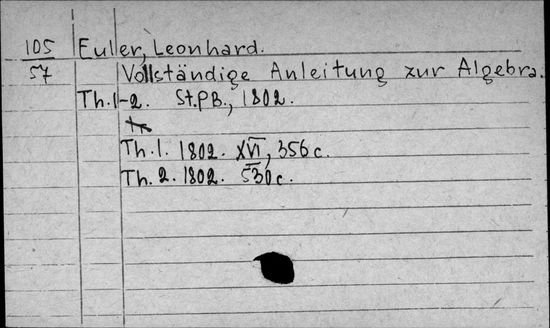 105 Euler, Leonhard.
57 Vollständige Anleitung zur Algebra.
Th.1-2. St.PB., 1802.
Th.1. 1802. XVI, 356 c.
Th.2. 1802. 530 c.